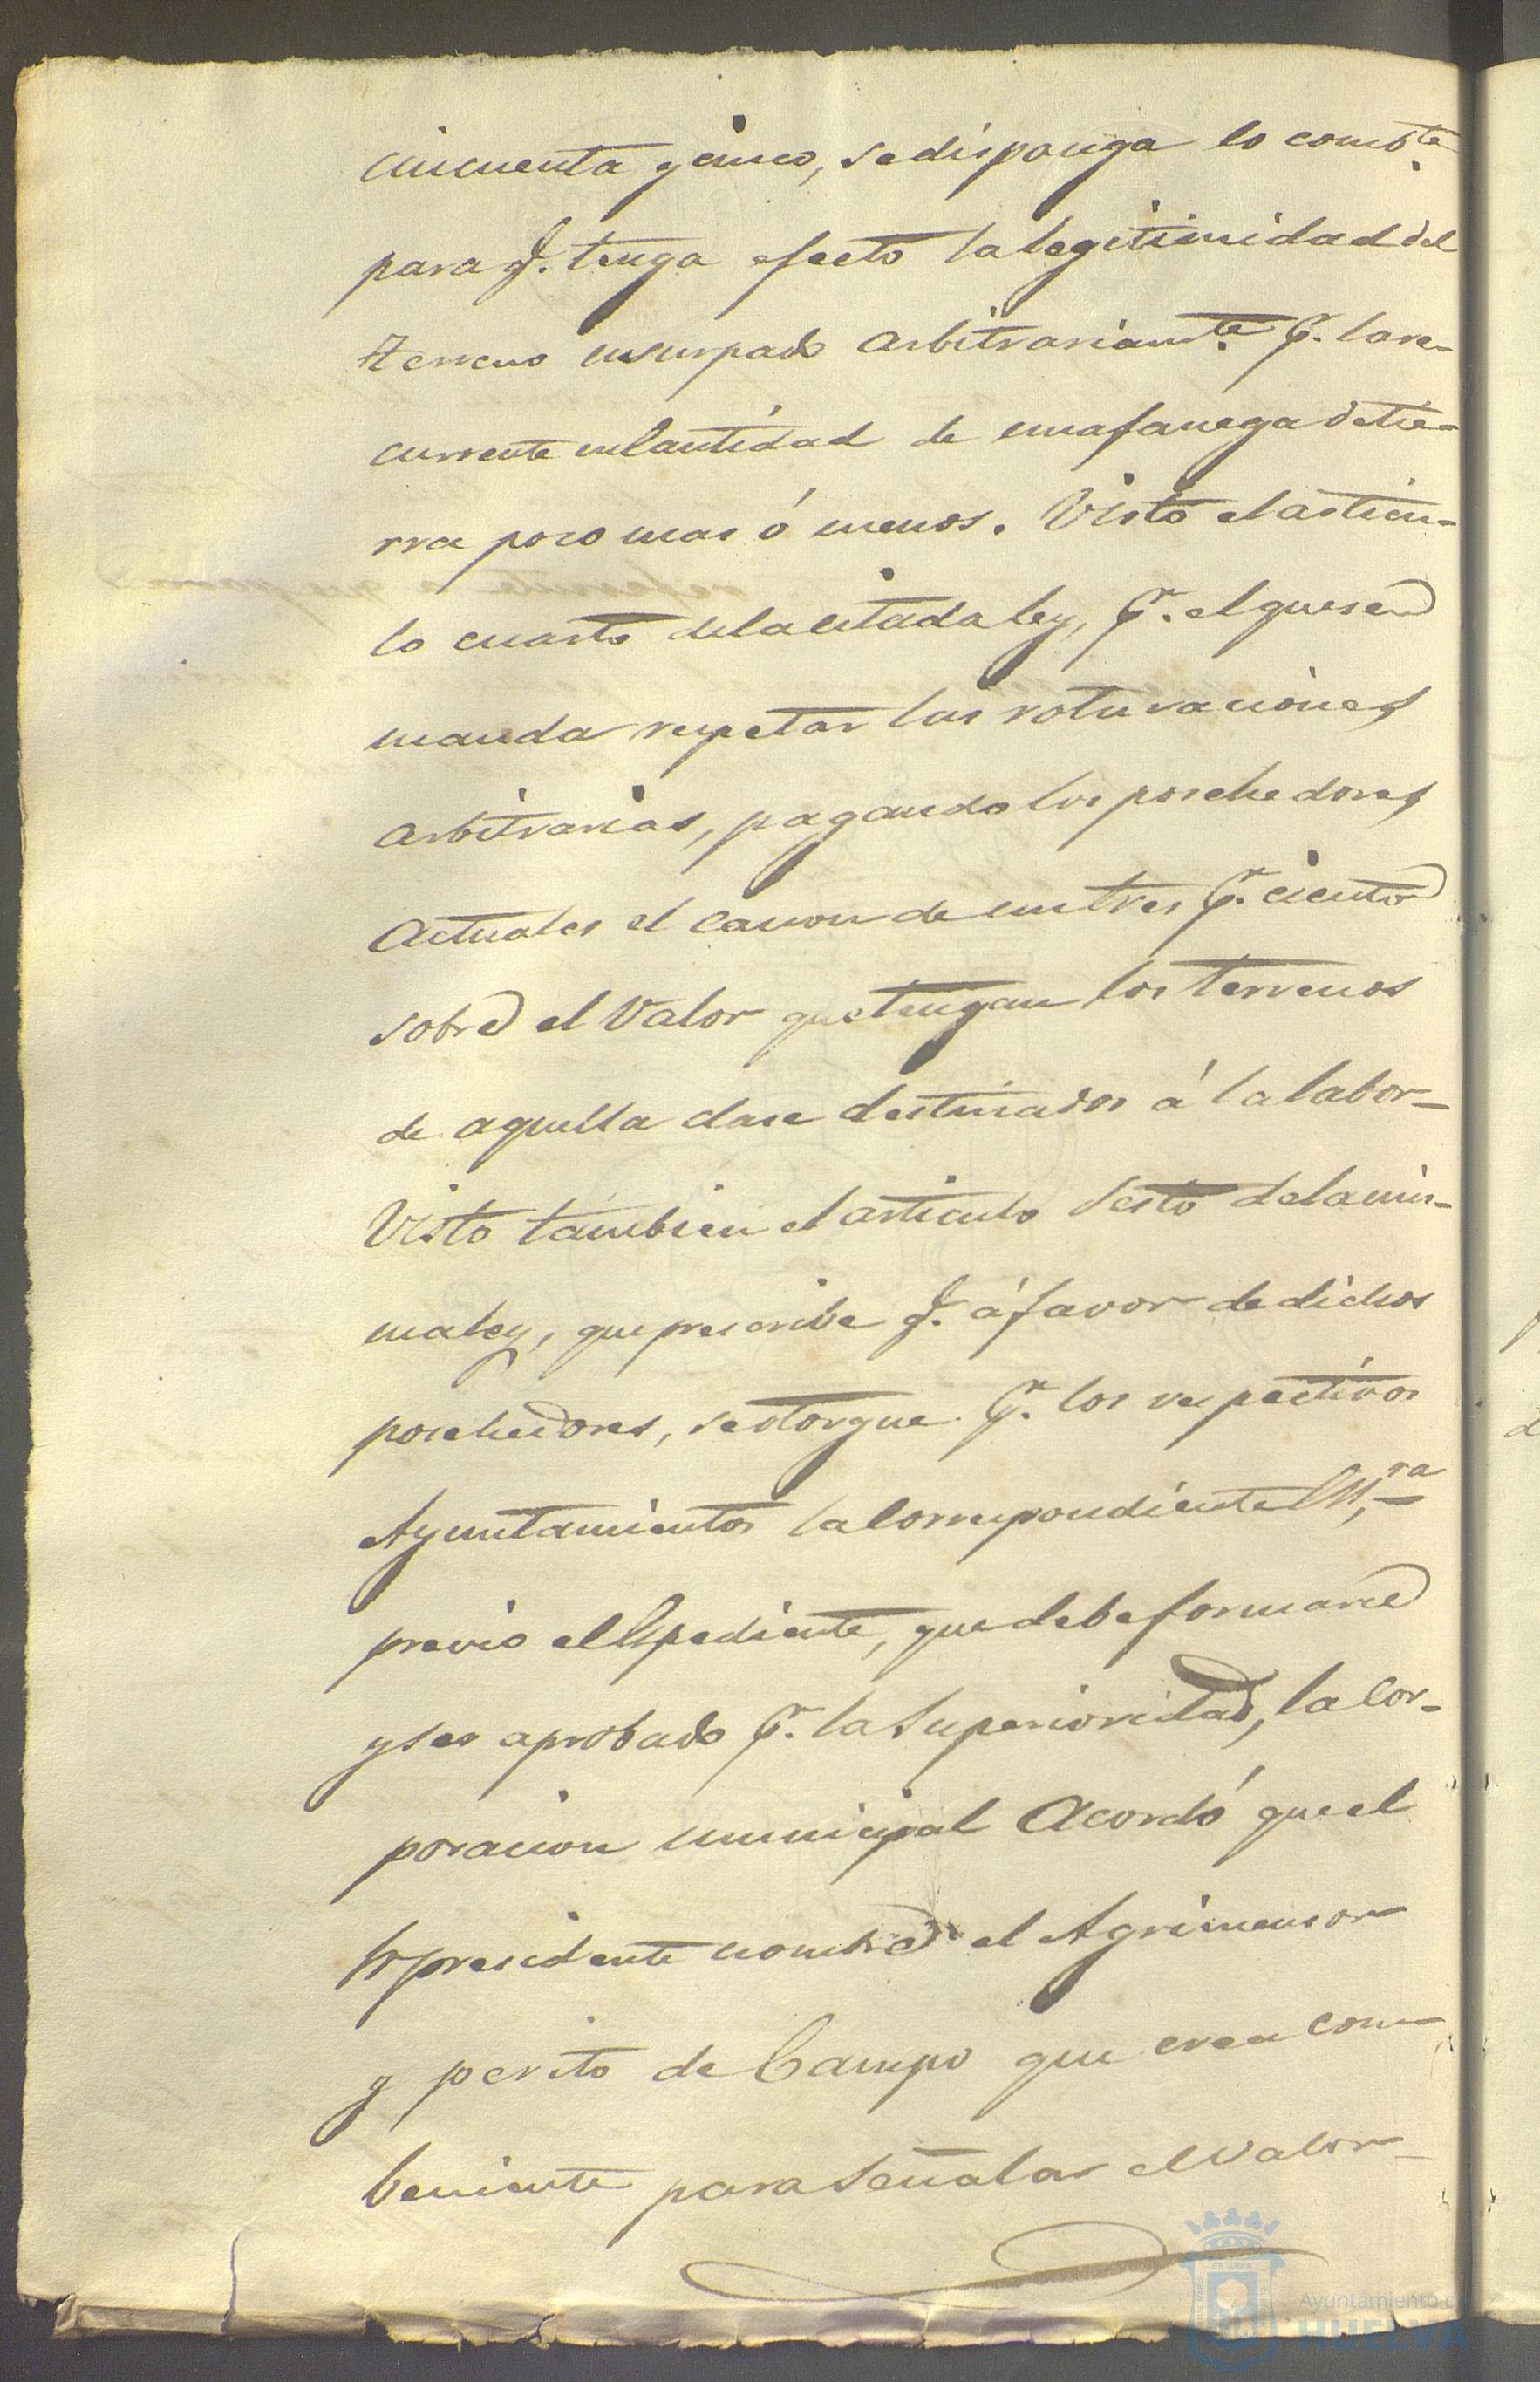 cincuenta y cinco, se disponga lo combte
para q. tenga efecto la legitimidad del
terreno usurpado arbitrariamte. pr. la re-
currente en Cantidad de una fanega de tie-
rra poco mas ó menos. Visto el artícu-
lo cuarto de la citada ley, pr. el que se
manda respetar las roturaciones
arbitrarias, pagando los posehedores
actuales el canon de un tres pr. ciento
sobre el Valor que tengan los terrenos
de aquella clase destinados á la labor_
Visto tambien el articulo Sesto de la mis-
ma ley, que prescribe q. á favor de dichos
posehedores, se otorgue pr. los respectivos
Ayuntamientos la Correspondiente Esra,
previo el Espediente, que debe formarse
y ser aprobado pr. la Superioridad, la Cor-
poracion municipal Acordó que el
Sr presidente nombre el Agrimensor
y perito de Campo que crea con-
beniente para Señalar el valor_
Ayuntamiento de
HUELVA